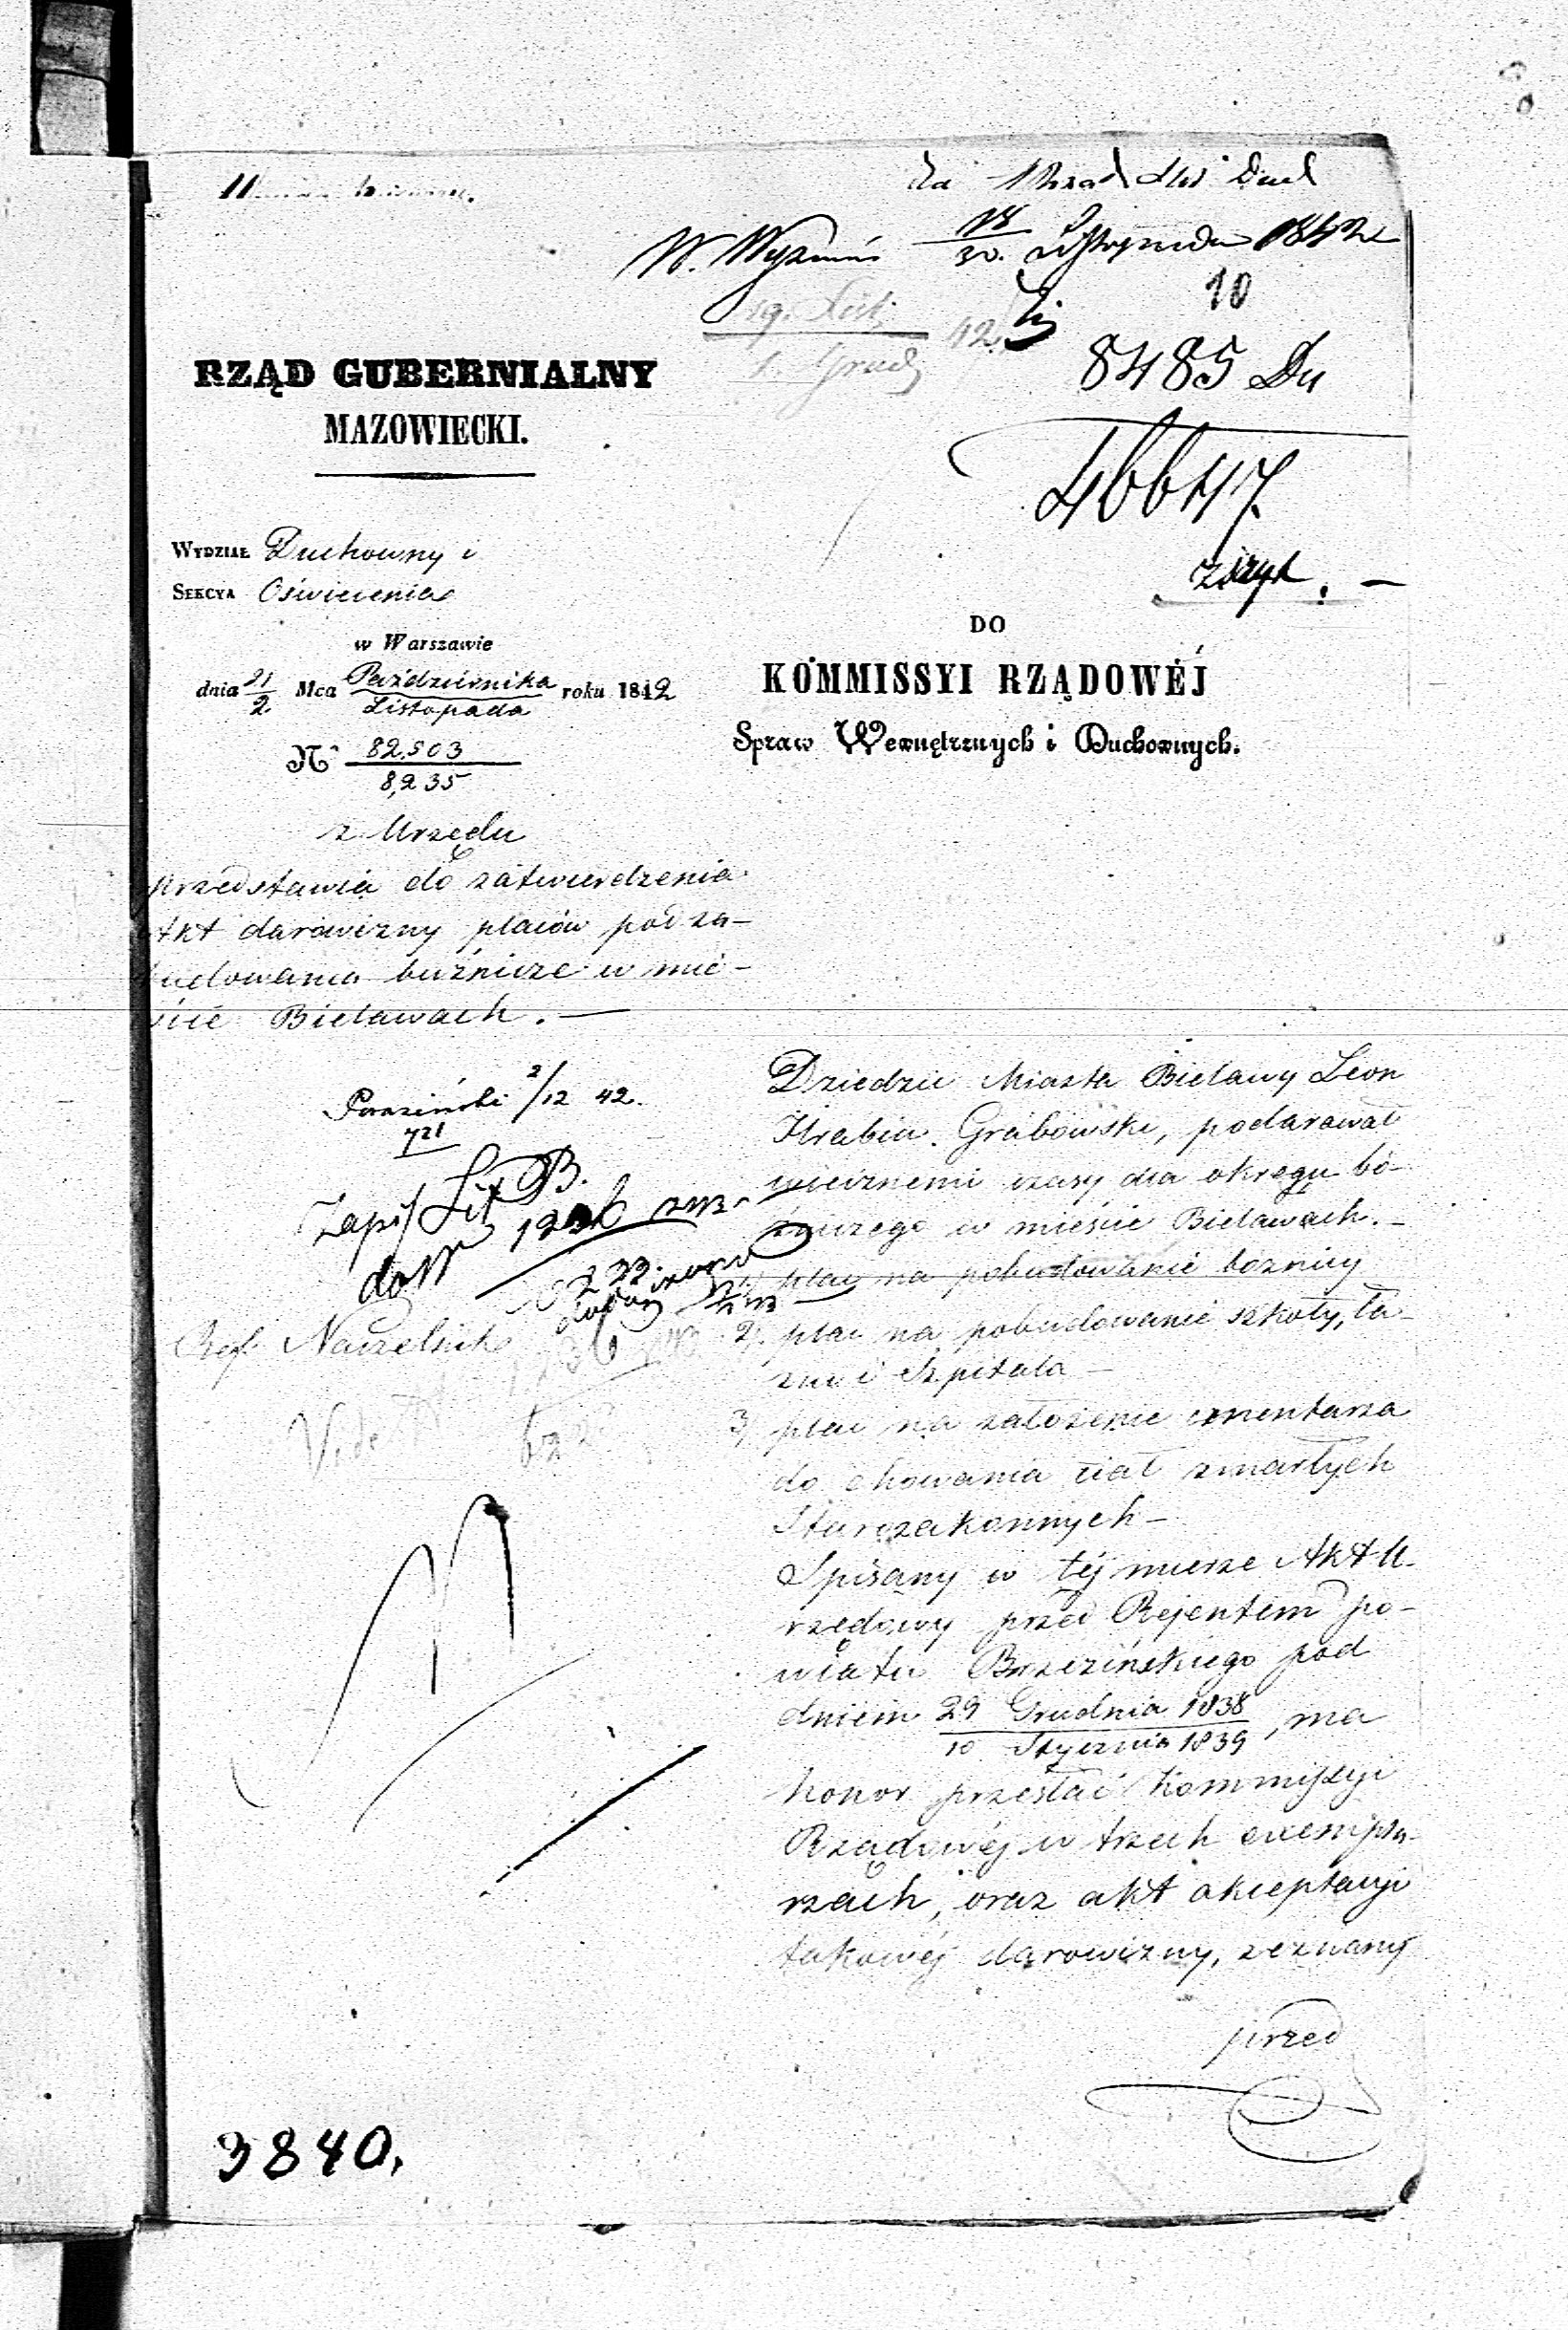 10
8485 Du
46647
RZĄD GUBERNIALNY
MAZOWIECKI.
WYDZIAŁ Duchowny i
SEKCYA Oświecenia
w Warszawie
dnia 21/2 Mca Października/Listopada roku 1842
N° 82,503
8,235
z Urzędu
przedstawia do zatwierdzenia
Akt darowizny placów pod za-
budowania bużnicze w mie-
ście Bielawach. —
DO
KOMMISSYI RZĄDOWÉJ
Spraw Wewnętrznych i Duchownych.
2/12 42.
721
Zapis Lit B.
Naczelnik
Vide
Dziedzic Miasta Bielawy Leon
Hrabia Grabowski, podarował
wiecznemi czasy dla okręgu bo-
źniczego w mieście Bielawach. —
1, plac na pobudowanie boznicy
2, plac na pobudowanie szkoły, ła-
zni i Szpitala —
3, plac na założenie cmentarza
do chowania ciał zmarłych
Starozakonnych —
Spisany w téj mierze Akt U-
rzędowy przed Rejentem po-
wiatu Brzezińskiego pod
dniem 29 Grudnia 1838/10 Stycznia 1839, ma
honor przesłać Kommissyi
Rządowéj w trzech exempla-
rzach, oraz akt akceptacyi
takowéj darowizny, zeznany
przed
3840.